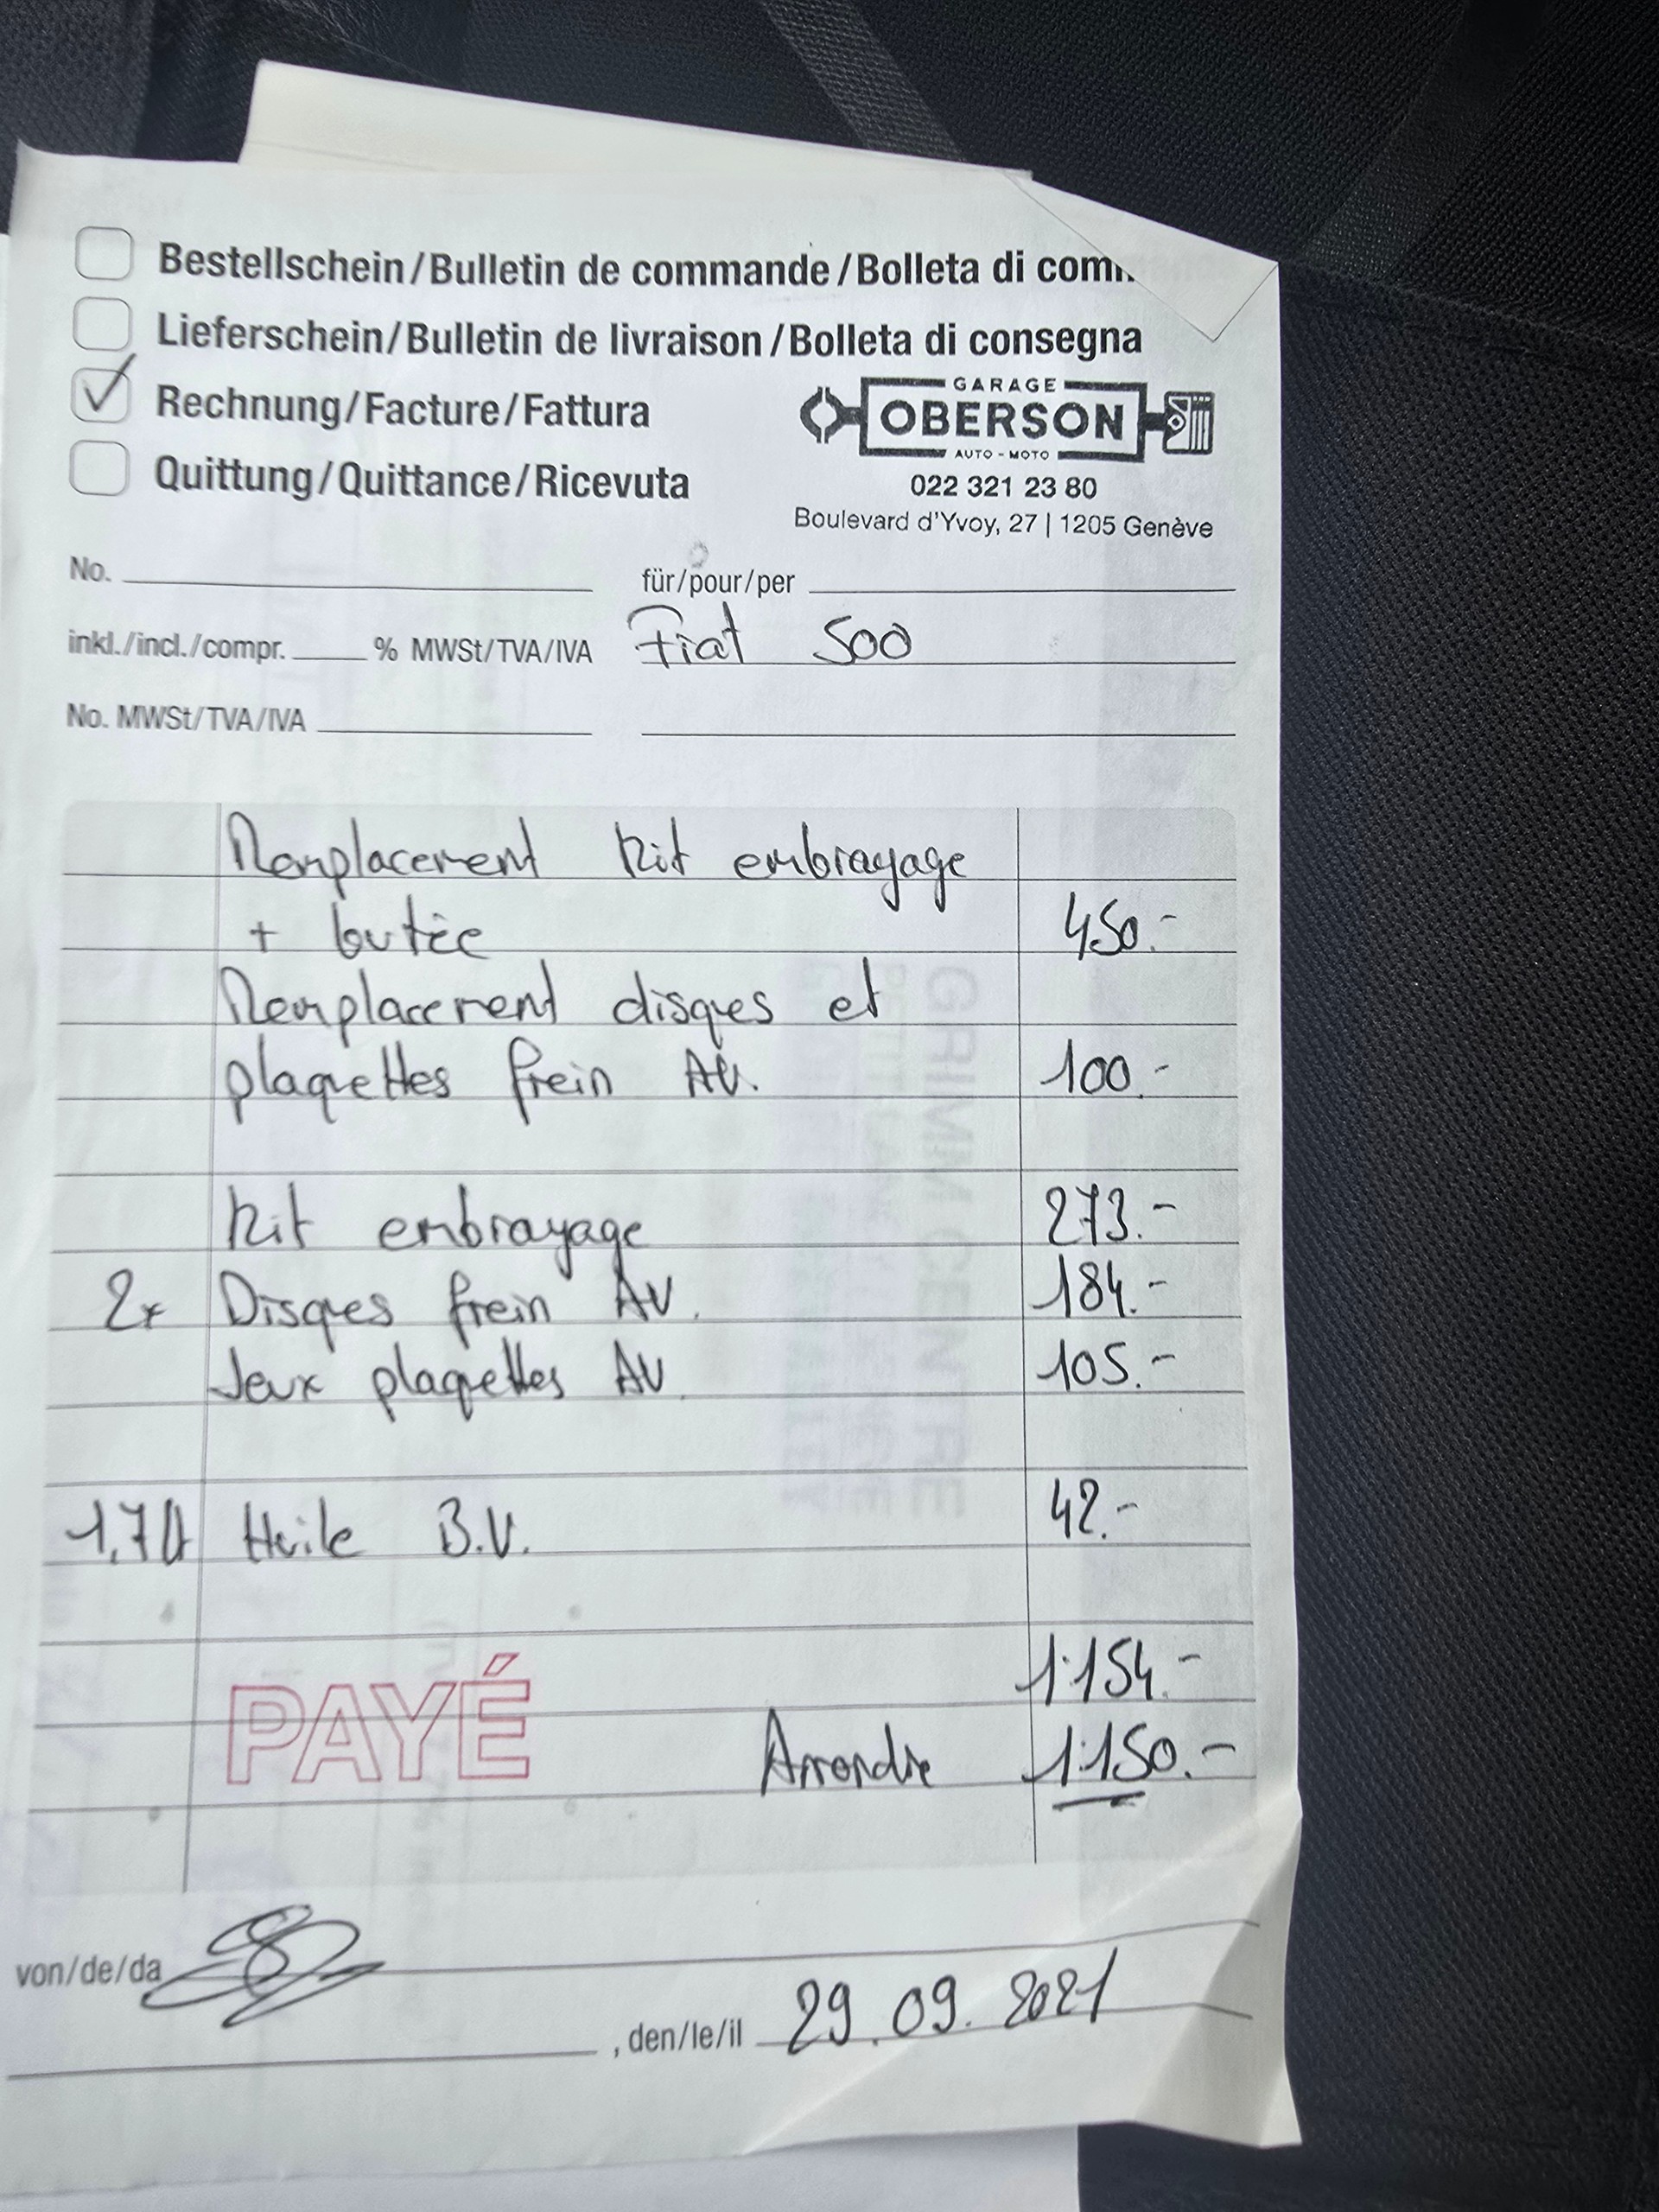 Bestellschein/Bulletin de commande/Bolleta di com
Lieferschein/Bulletin de livraison/Bolleta di consegna
Rechnung/Facture/Fattura
Quittung/Quittance/Ricevuta
GARAGE
OBERSON
AUTO - MOTO
022 321 23 80
Boulevard d'Yvoy, 27 | 1205 Genève
No. für/pour/per
inkl./incl./compr. % MWSt/TVA/IVA Fiat 500
No. MWSt/TVA/IVA
Remplacement kit embrayage
+ butée 450.-
Remplacement disques et
plaquettes frein AV. 100.-
Kit embrayage 273.-
2x Disques frein AV. 184.-
Jeux plaquettes AV 105.-
Huile B.V. 42.-
1'154.-
PAYÉ
Arrondie 1'150.-
von/de/da
, den/le/il 29.09.2021
GRIMM CENTRE